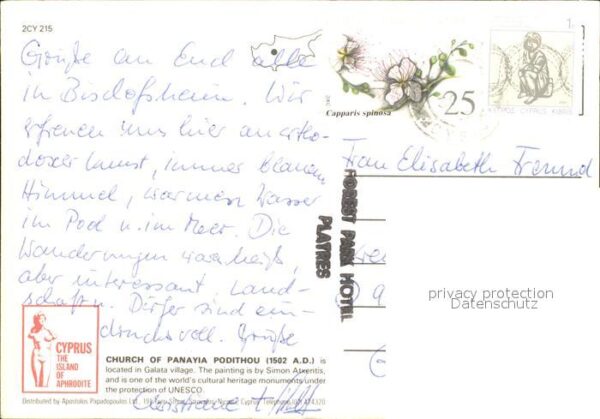 2CY 215
Grüße an Euch alle
in Bischofsheim. Wir
erfreuen uns hier an ortho-
doxer Kunst, immer blauem
Himmel, warmem Wasser
im Pool u. im Meer. Die
Wanderungen waren heiß,
aber interessant. Land-
schaft u. Dörfer sind ein-
drucksvoll. Grüße
CYPRUS
THE
ISLAND
OF
APHRODITE
CHURCH OF PANAYIA PODITHOU (1502 A.D.) is
located in Galata village. The painting is by Simon Axentis,
and is one of the world's cultural heritage monuments under
the protection of UNESCO.
Distributed by Apostolos Papadopoulos Ltd.
Christiane
Capparis spinosa
25
1
ΚΥΠΡΟΣ CYPRUS KIBRIS
Frau Elisabeth Freund
FOREST PARK HOTEL
PLATRES
privacy protection
Datenschutz